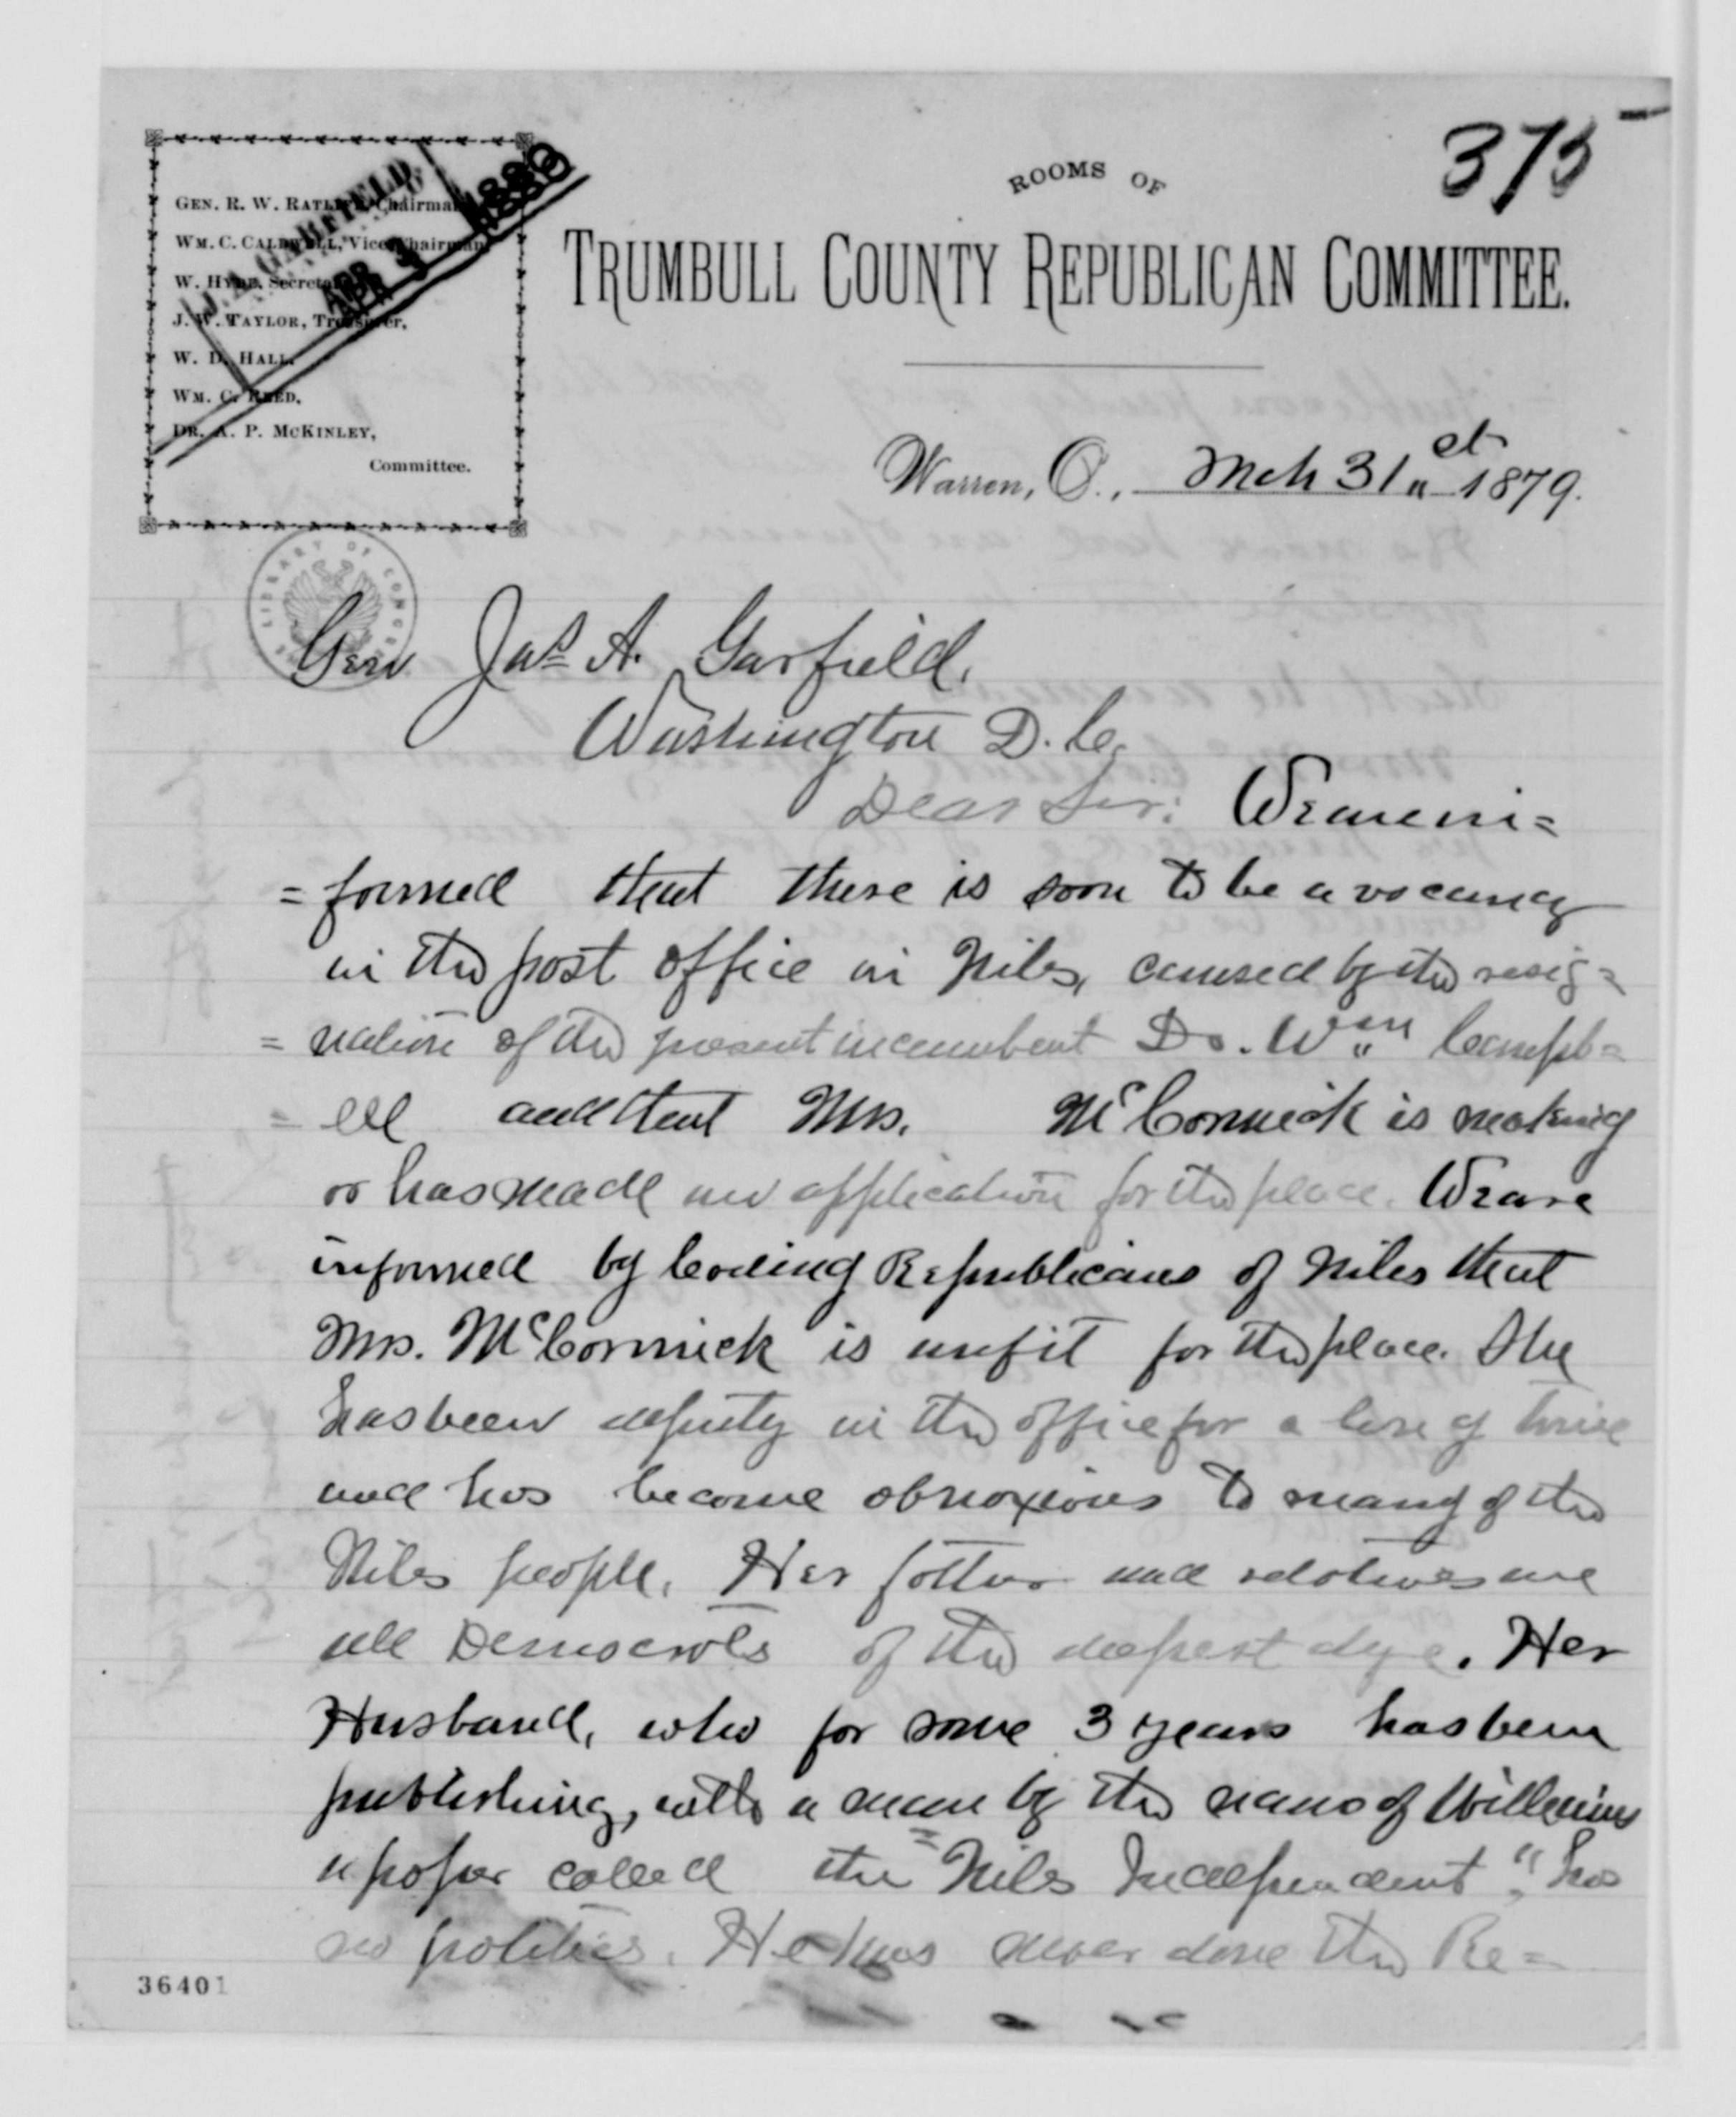 375
ROOMS OF
TRUMBULL COUNTY REPUBLICAN COMMITTEE.
GEN. R. W. RATLIFF, Chairman,
WM. C. CALDWELL, Vice Chairman,
W. HYDE, Secretary,
J. W. TAYLOR, Treasurer,
W. D. HALL,
WM. C. REED,
DR. A. P. MCKINLEY,
Committee.
J. A. GARFIELD,
APR 3
1880
Warren, O., Mch 31st 1879.
LIBRARY OF CONGRESS
Genl Jas A. Garfield,
Washington D. C.
Dear Sir: We are in=
=formed that there is soon to be a vacancy
in the post office in Niles, caused by the resig=
=nation of the present incumbent Dr. Wm Campb=
=ell and that Mrs. McCormick is making
or has made an application for the place. We are
informed by leading Republicans of Niles that
Mrs. McCormick is unfit for the place. She
has been deputy in the office for a long time
and has become obnoxious to many of the
Niles people. Her father and relatives are
all Democrats of the deepest dye. Her
Husband, who for some 3 years has been
publishing, with a man by the name of Williams
a paper called the "Niles Independent", has
no politics. He has never done the Re=
36401